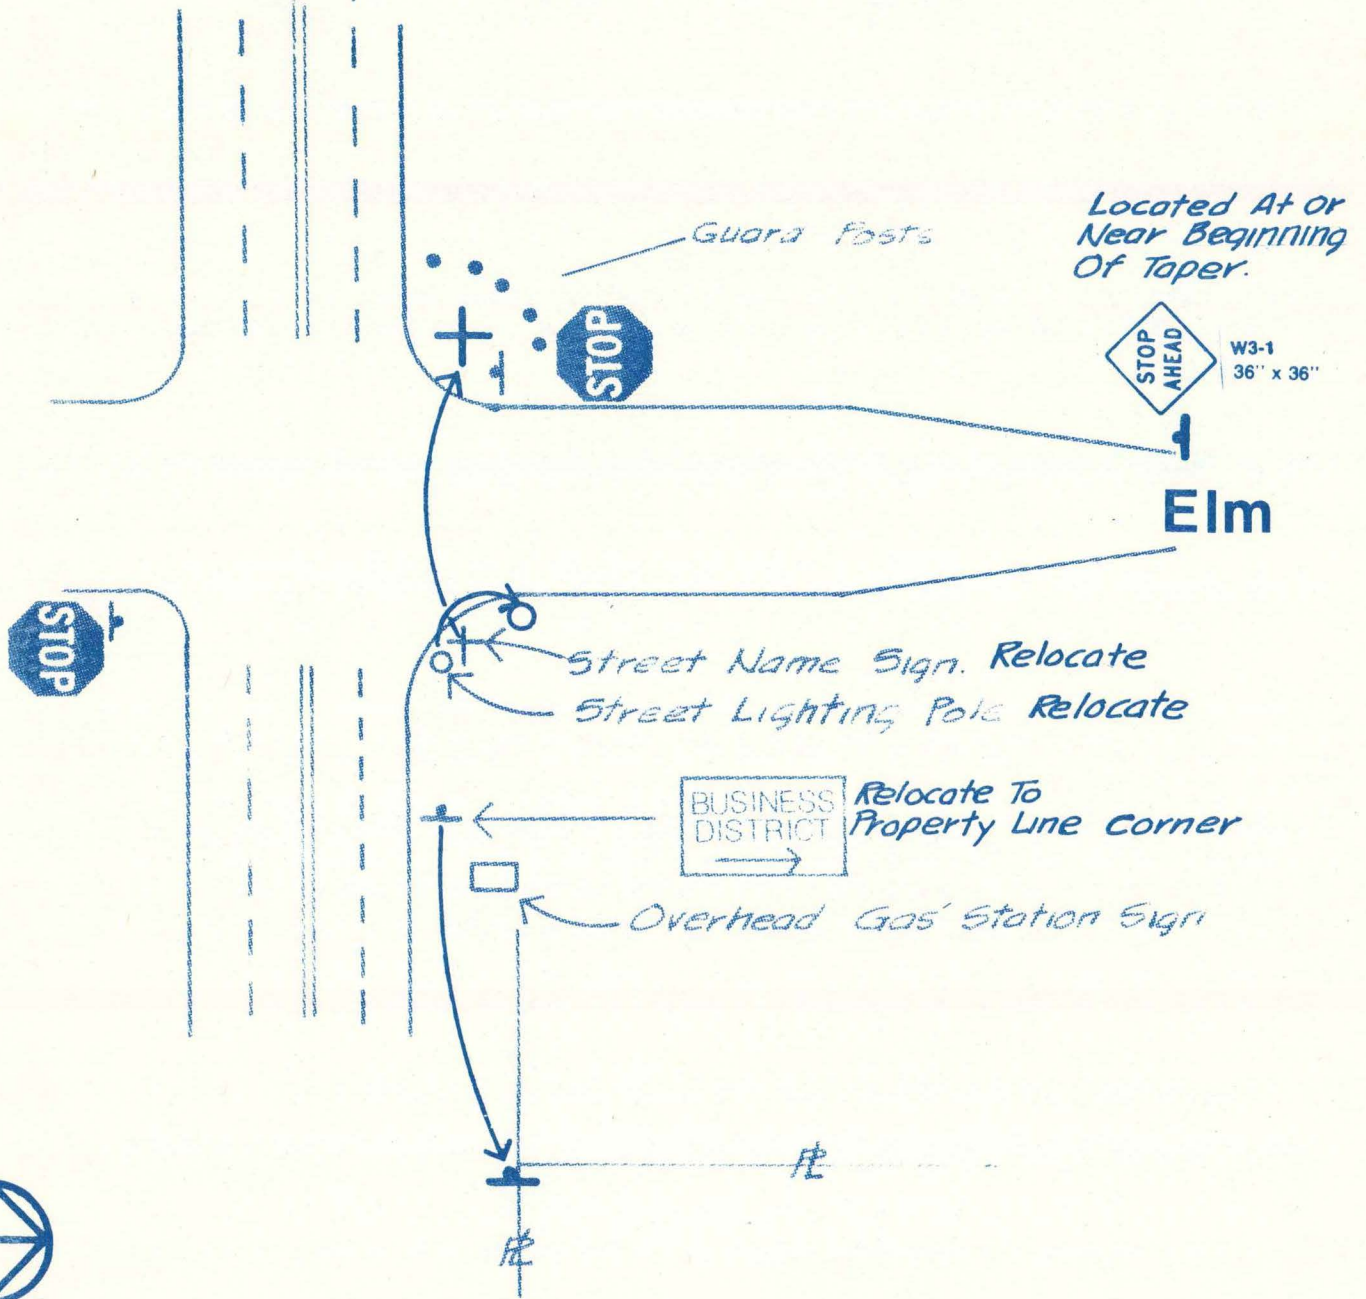 Guard Posts
Located At Or
Near Beginning
Of Taper.
STOP
STOP
AHEAD
W3-1
36" x 36"
Elm
STOP
Street Name Sign. Relocate
Street Lighting Pole Relocate
BUSINESS
DISTRICT
Relocate To
Property Line Corner
Overhead Gas Station Sign
PL
PL